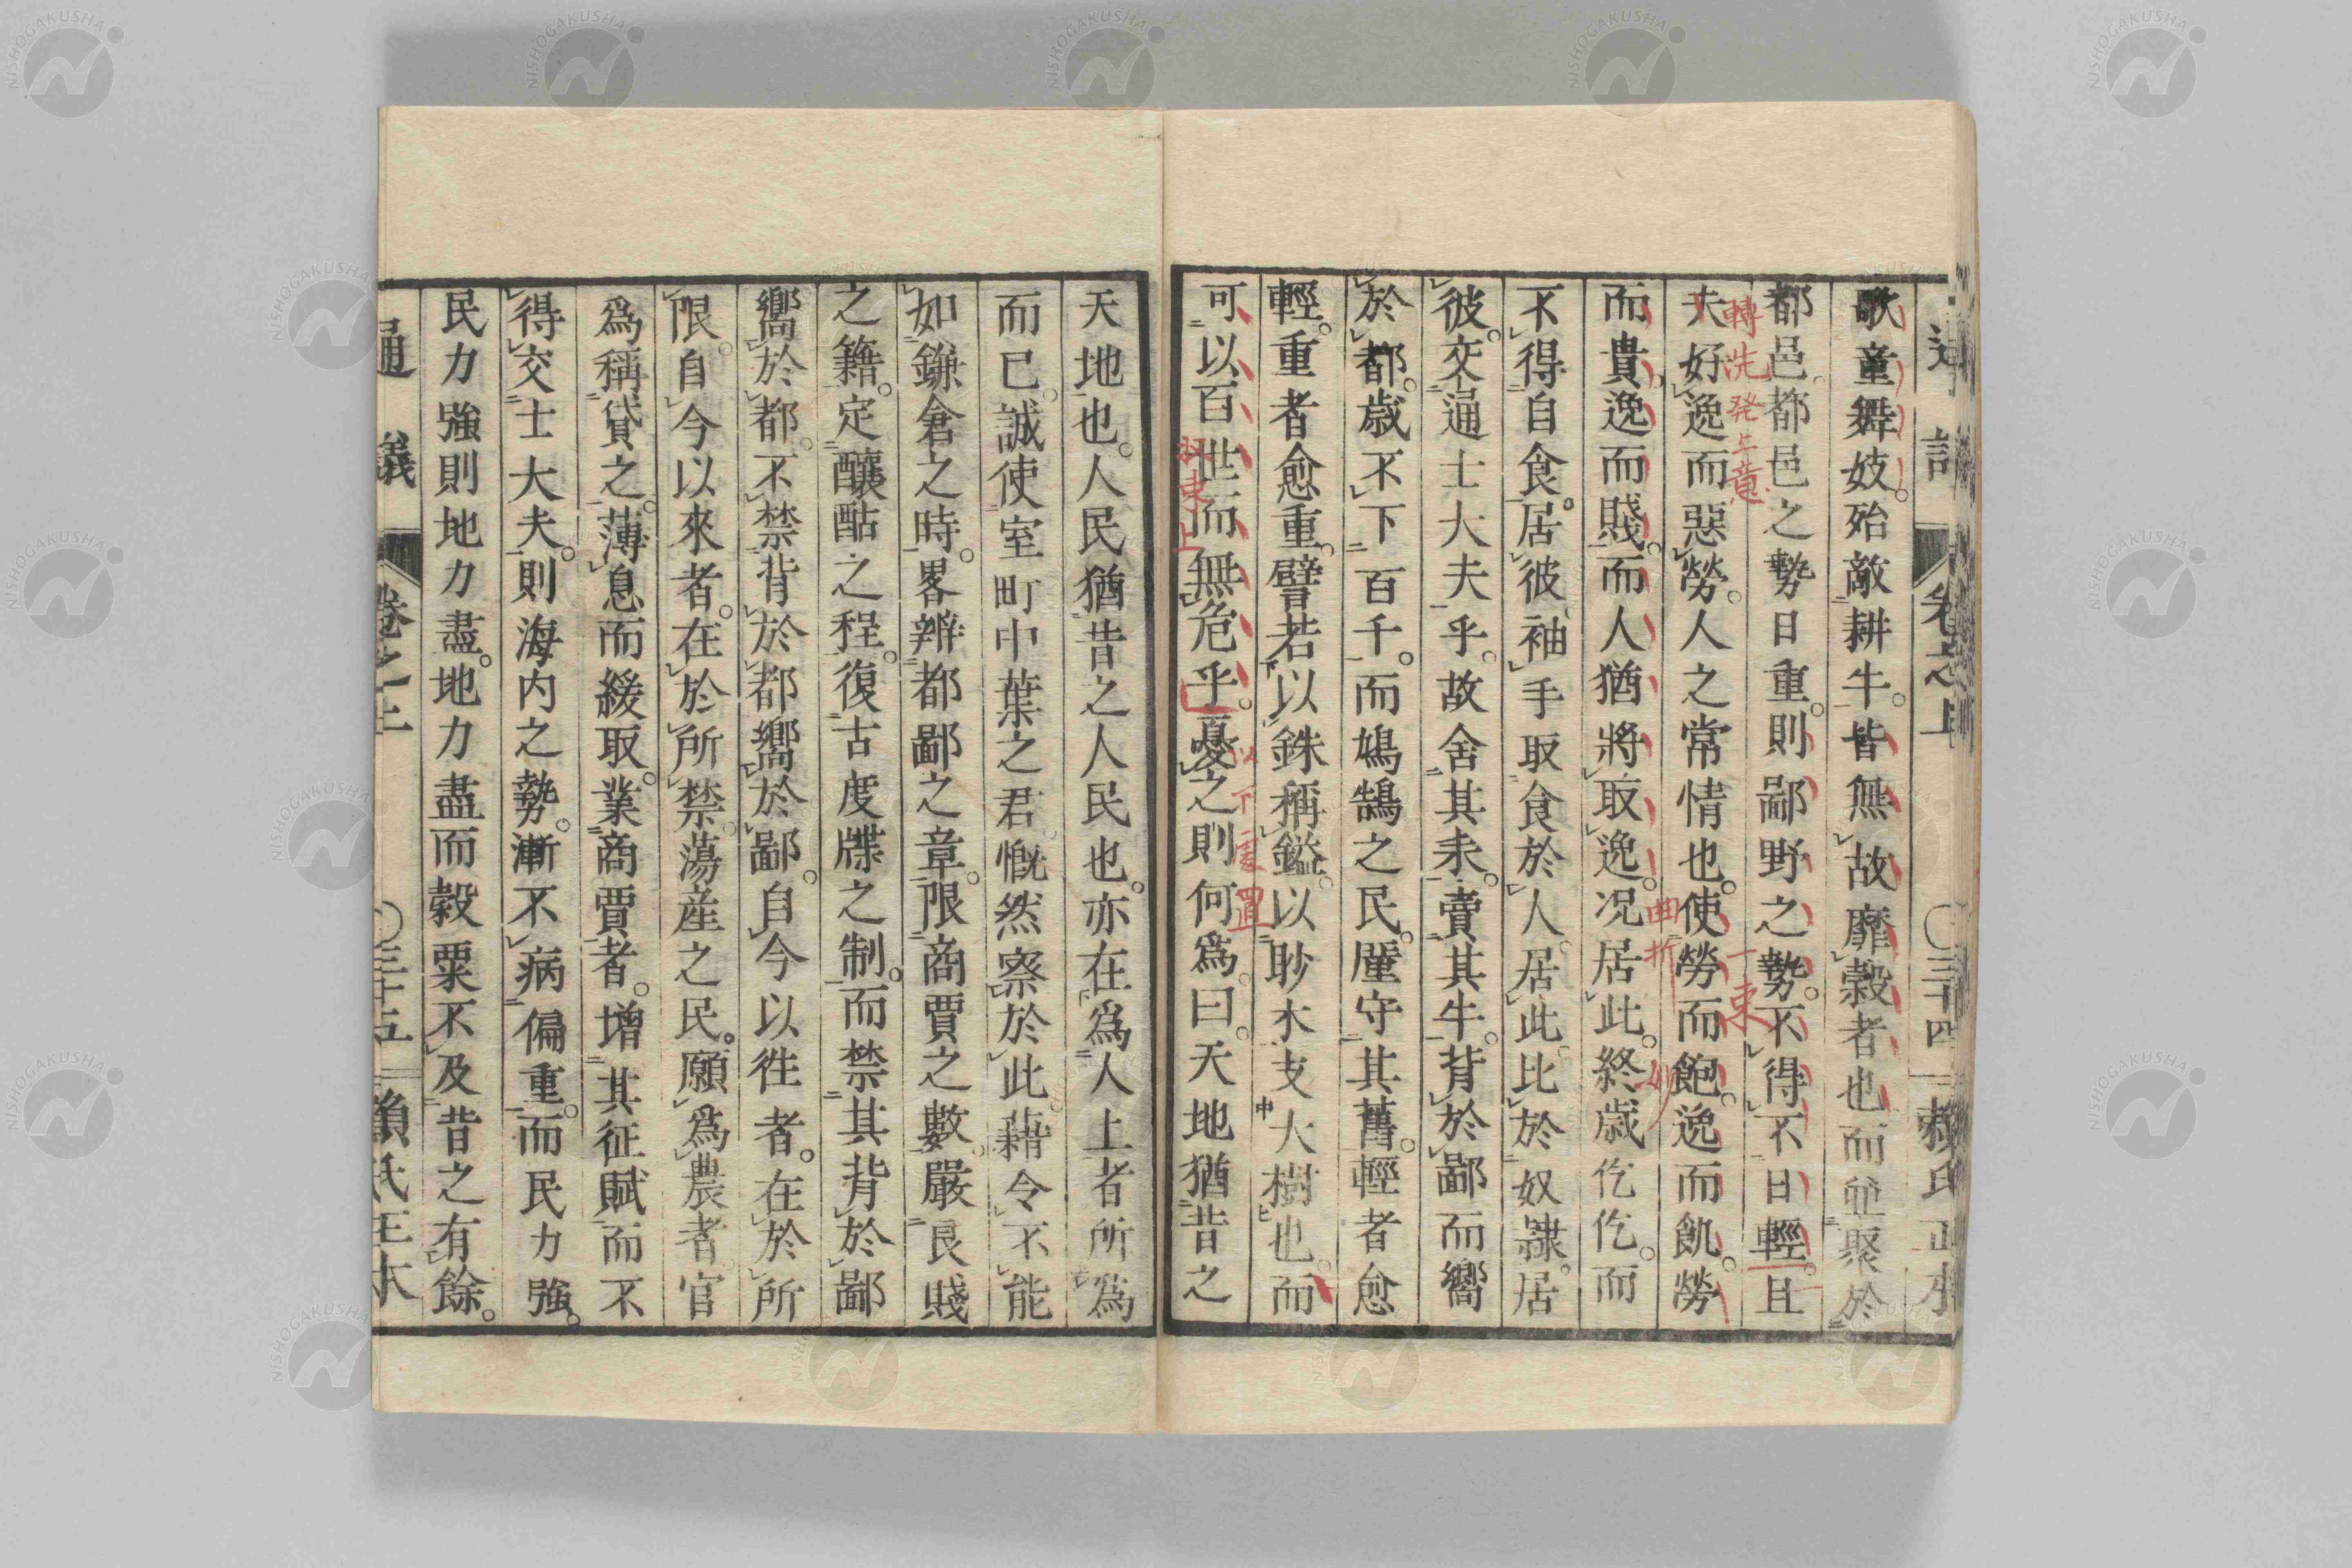 通議 卷之上 〇三十四 賴氏正本
歌童舞妓。殆敵耕牛。皆無故靡穀者也而並聚於
都邑。都邑之勢日重。則鄙野之勢。不得不日輕。且
夫好逸而惡勞。人之常情也。使勞而飽。逸而飢。勞
而貴逸而賤。而人猶將取逸。況居此。終歳仡仡。而
不得自食。居彼袖手取食於人。居此比於奴隷。居
彼。交通士大夫乎。故舍其耒。賣其牛。背於鄙而嚮
於都。歳不下百千。而鳩鵠之民。廑守其舊。輕者愈
輕。重者愈重。譬若以銖稱鎰。以眇木支大樹也。而
可以百世而無危乎。憂之則何爲。曰。天地猶昔之
轉洗発上意
一束
曲折
妙
收束上
以下処置
天地也。人民猶昔之人民也。亦在爲人上者所爲
而已。誠使室町中葉之君。慨然察於此。藉令不能
如鎌倉之時。畧辨都鄙之章。限商賈之數。嚴良賤
之籍。定釀酤之程。復古度牒之制。而禁其背於鄙
嚮於都。不禁背於都嚮於鄙。自今以徃者。在於所
限。自今以來者。在於所禁。蕩産之民。願爲農者。官
爲稱貸之。薄息而緩取。業商賈者。增其征賦而不
得交士大夫。則海内之勢。漸不病偏重。而民力強。
民力強則地力盡。地力盡而穀粟不及昔之有餘。
通議 卷之上 〇三十五 賴氏正本